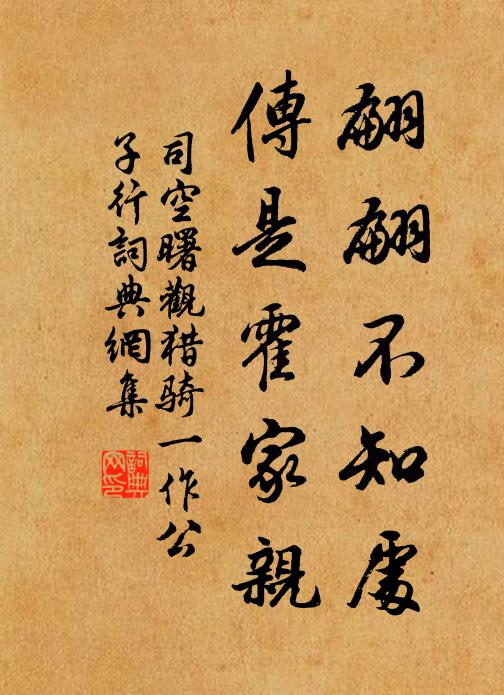 翩翩不知處
傳是霍家親
司空曙觀猎骑一作公
子行詞典網集
詞典網印